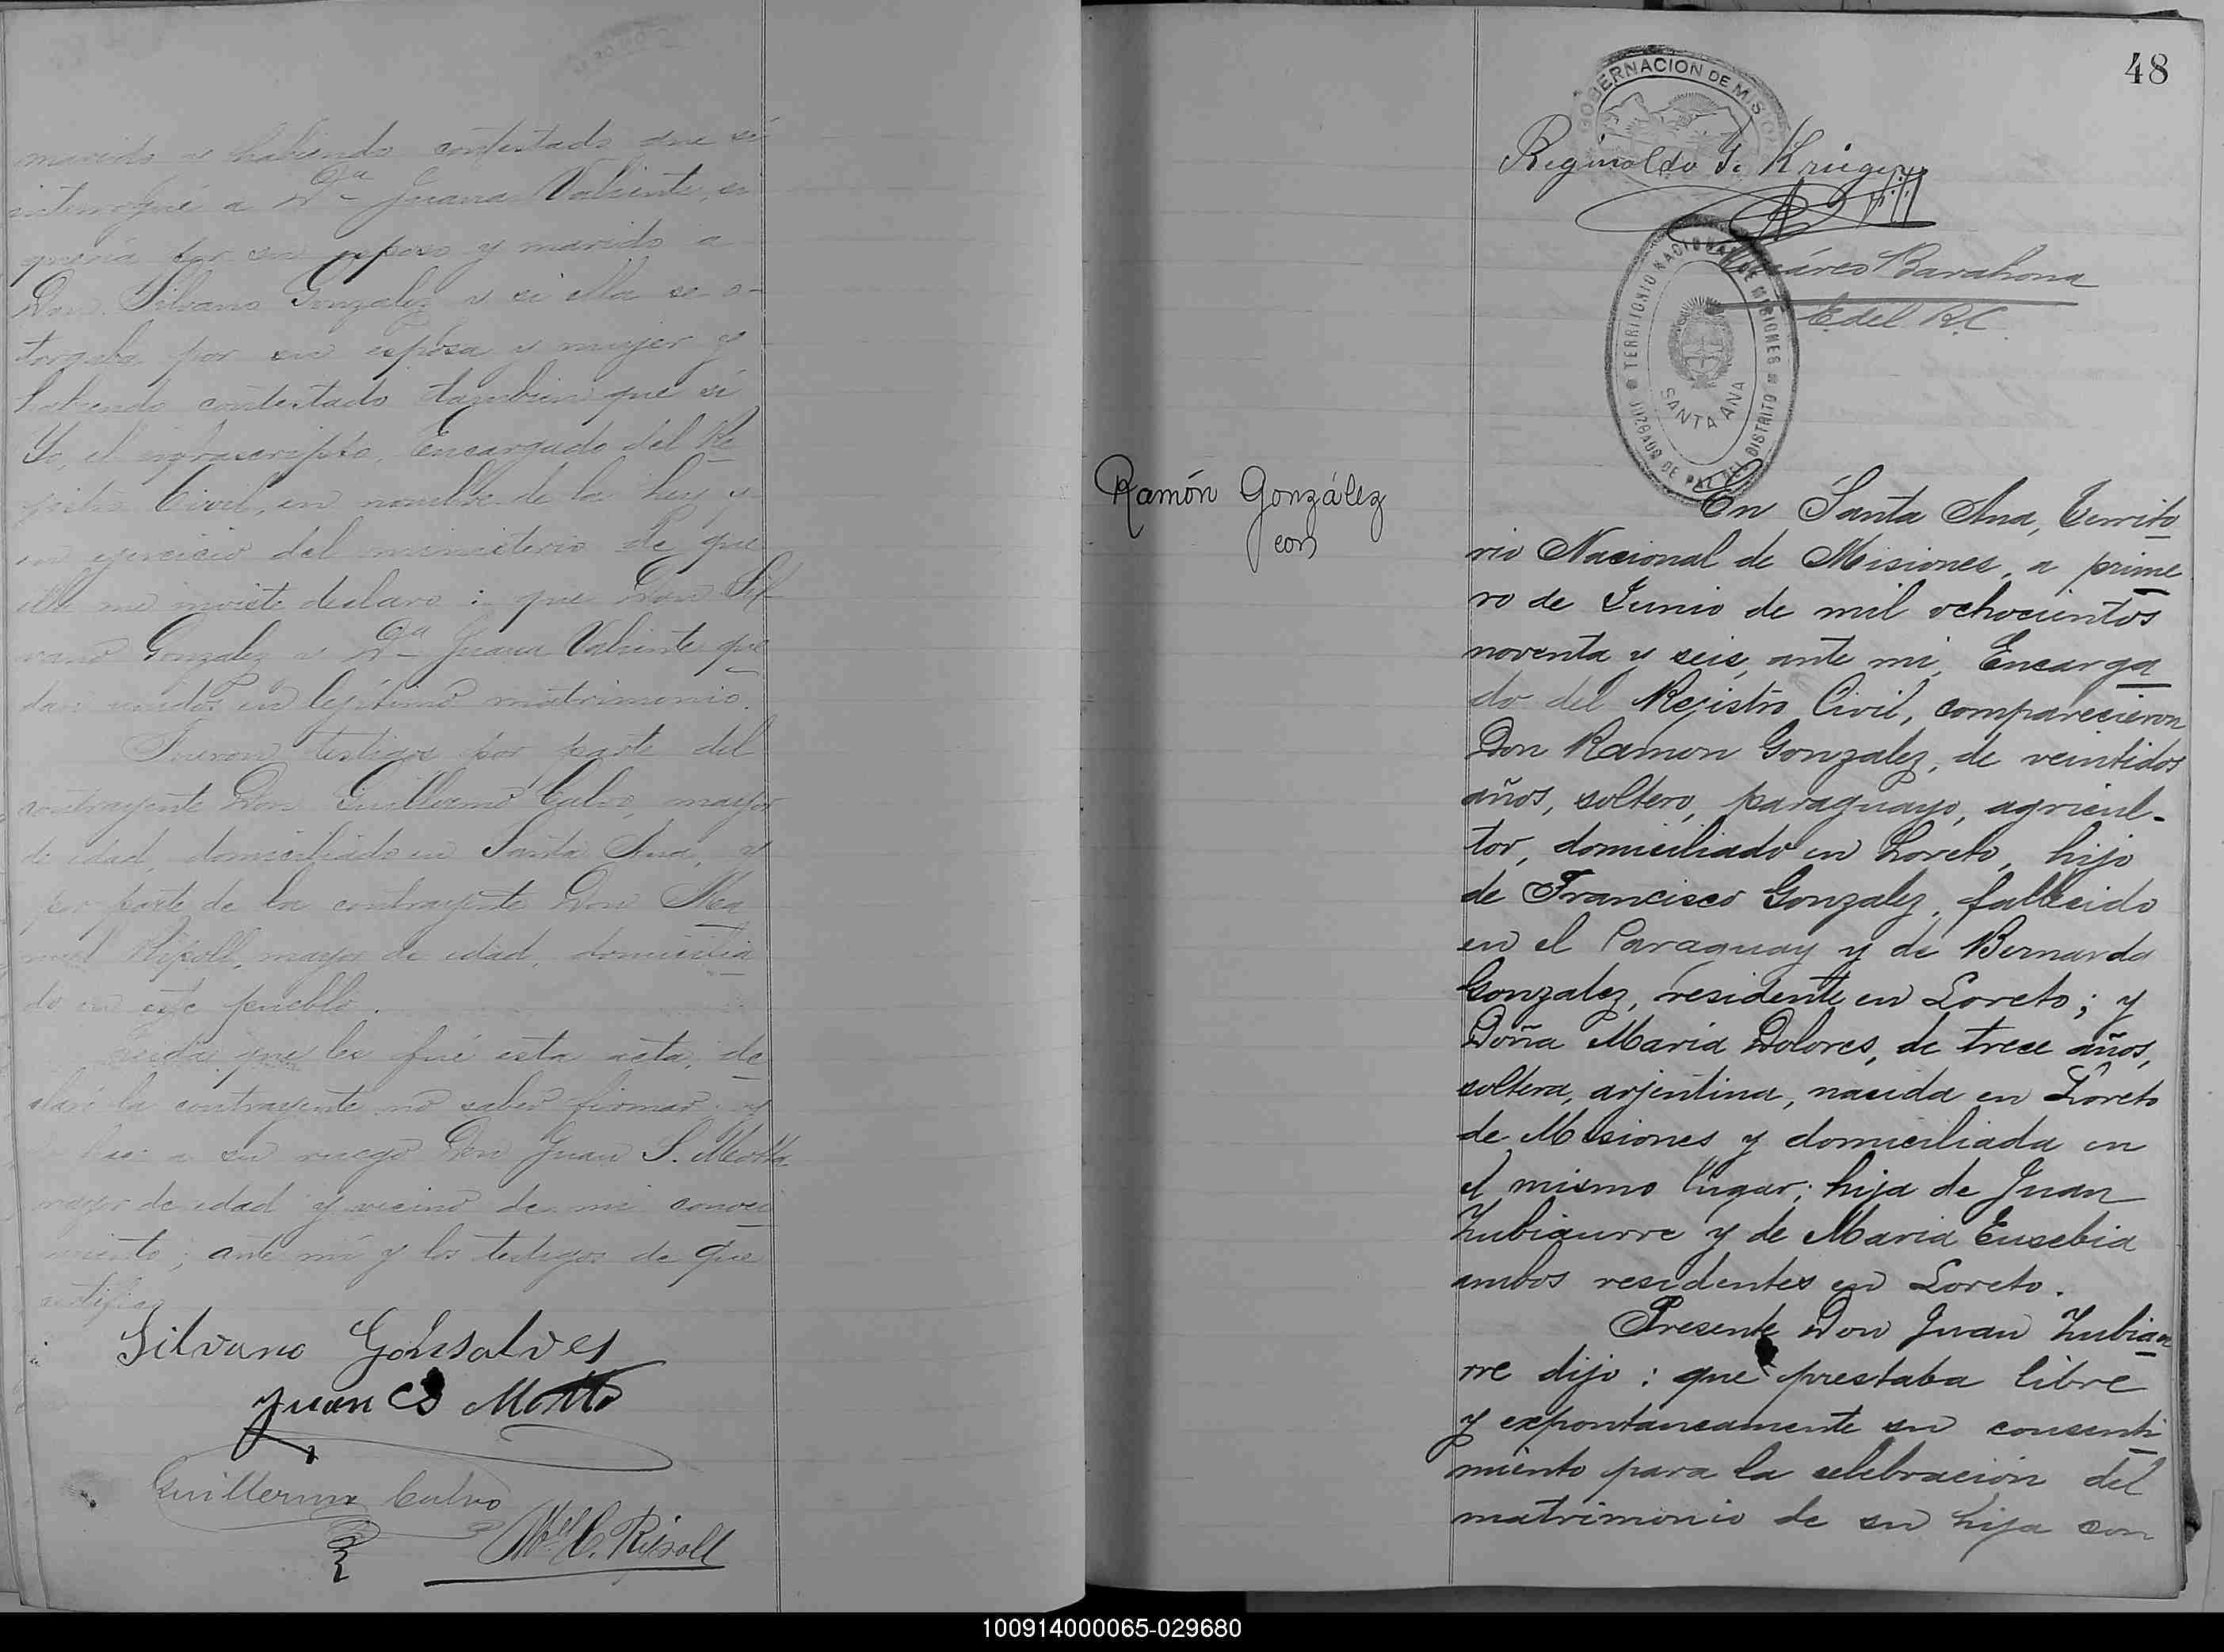 marido y habiendo contestado que sí
interrogué a Dª Juana Valiente, si
quería por su esposo y marido a
Don Silvano Gonzalez y si ella se o-
torgaba por su esposa y mujer y
habiendo contestado tambien que sí
Yo, el infrascripto, Encargado del Re
gistro Civil, en nombre de la Ley y
en ejercicio del ministerio de que
ella me inviste declaro : que Don Sil
vano Gonzalez y Dª Juana Valiente que
dan unidos en lejítimo matrimonio.
Fueron testigos por parte del
contrayente Don Guillermo Calvo, mayor
de edad, domiciliado en Santa Ana, y
por parte de la contrayente Don Ma
nuel Ripoll, mayor de edad, domicilia
do en este pueblo.
Leida que les fué esta acta, de
claró la contrayente no saber firmar y
a su ruego Don Juan S. Motta
mayor de edad y vecino de mi conoci
miento; ante mí y los testigos de que
certifico
Silvano Gonsalves
Juan S Motta
Guillermo Calvo
Mel C. Ripoll
48
GOBERNACION DE MISIONES
Reginaldo F. Krieger
Barahona
E. del R.C.
TERRITORIO NACIONAL DE MISIONES
JUZGADO DE PAZ DEL DISTRITO
SANTA ANA
Ramón González
con
En Santa Ana, Territo
rio Nacional de Misiones, a prime
ro de Junio de mil ochocientos
noventa y seis, ante mi, Encarga
do del Rejistro Civil, comparecieron
Don Ramon Gonzalez, de veintidos
años, soltero, paraguayo, agricul-
tor, domiciliado en Loreto, hijo
de Francisco Gonzalez, fallecido
en el Paraguay y de Bernarda
Gonzalez, residente en Loreto; y
Doña Maria Dolores, de trece años,
soltera, arjentina, nacida en Loreto
de Misiones y domiciliada en
el mismo lugar; hija de Juan
Zubiaurre y de Maria Eusebia
ambos residentes en Loreto.
Presente Don Juan Zubiau
rre dijo : que prestaba libre
y expontaneamente su consenti
miento para la celebración del
matrimonio de su hija con
100914000065-029680